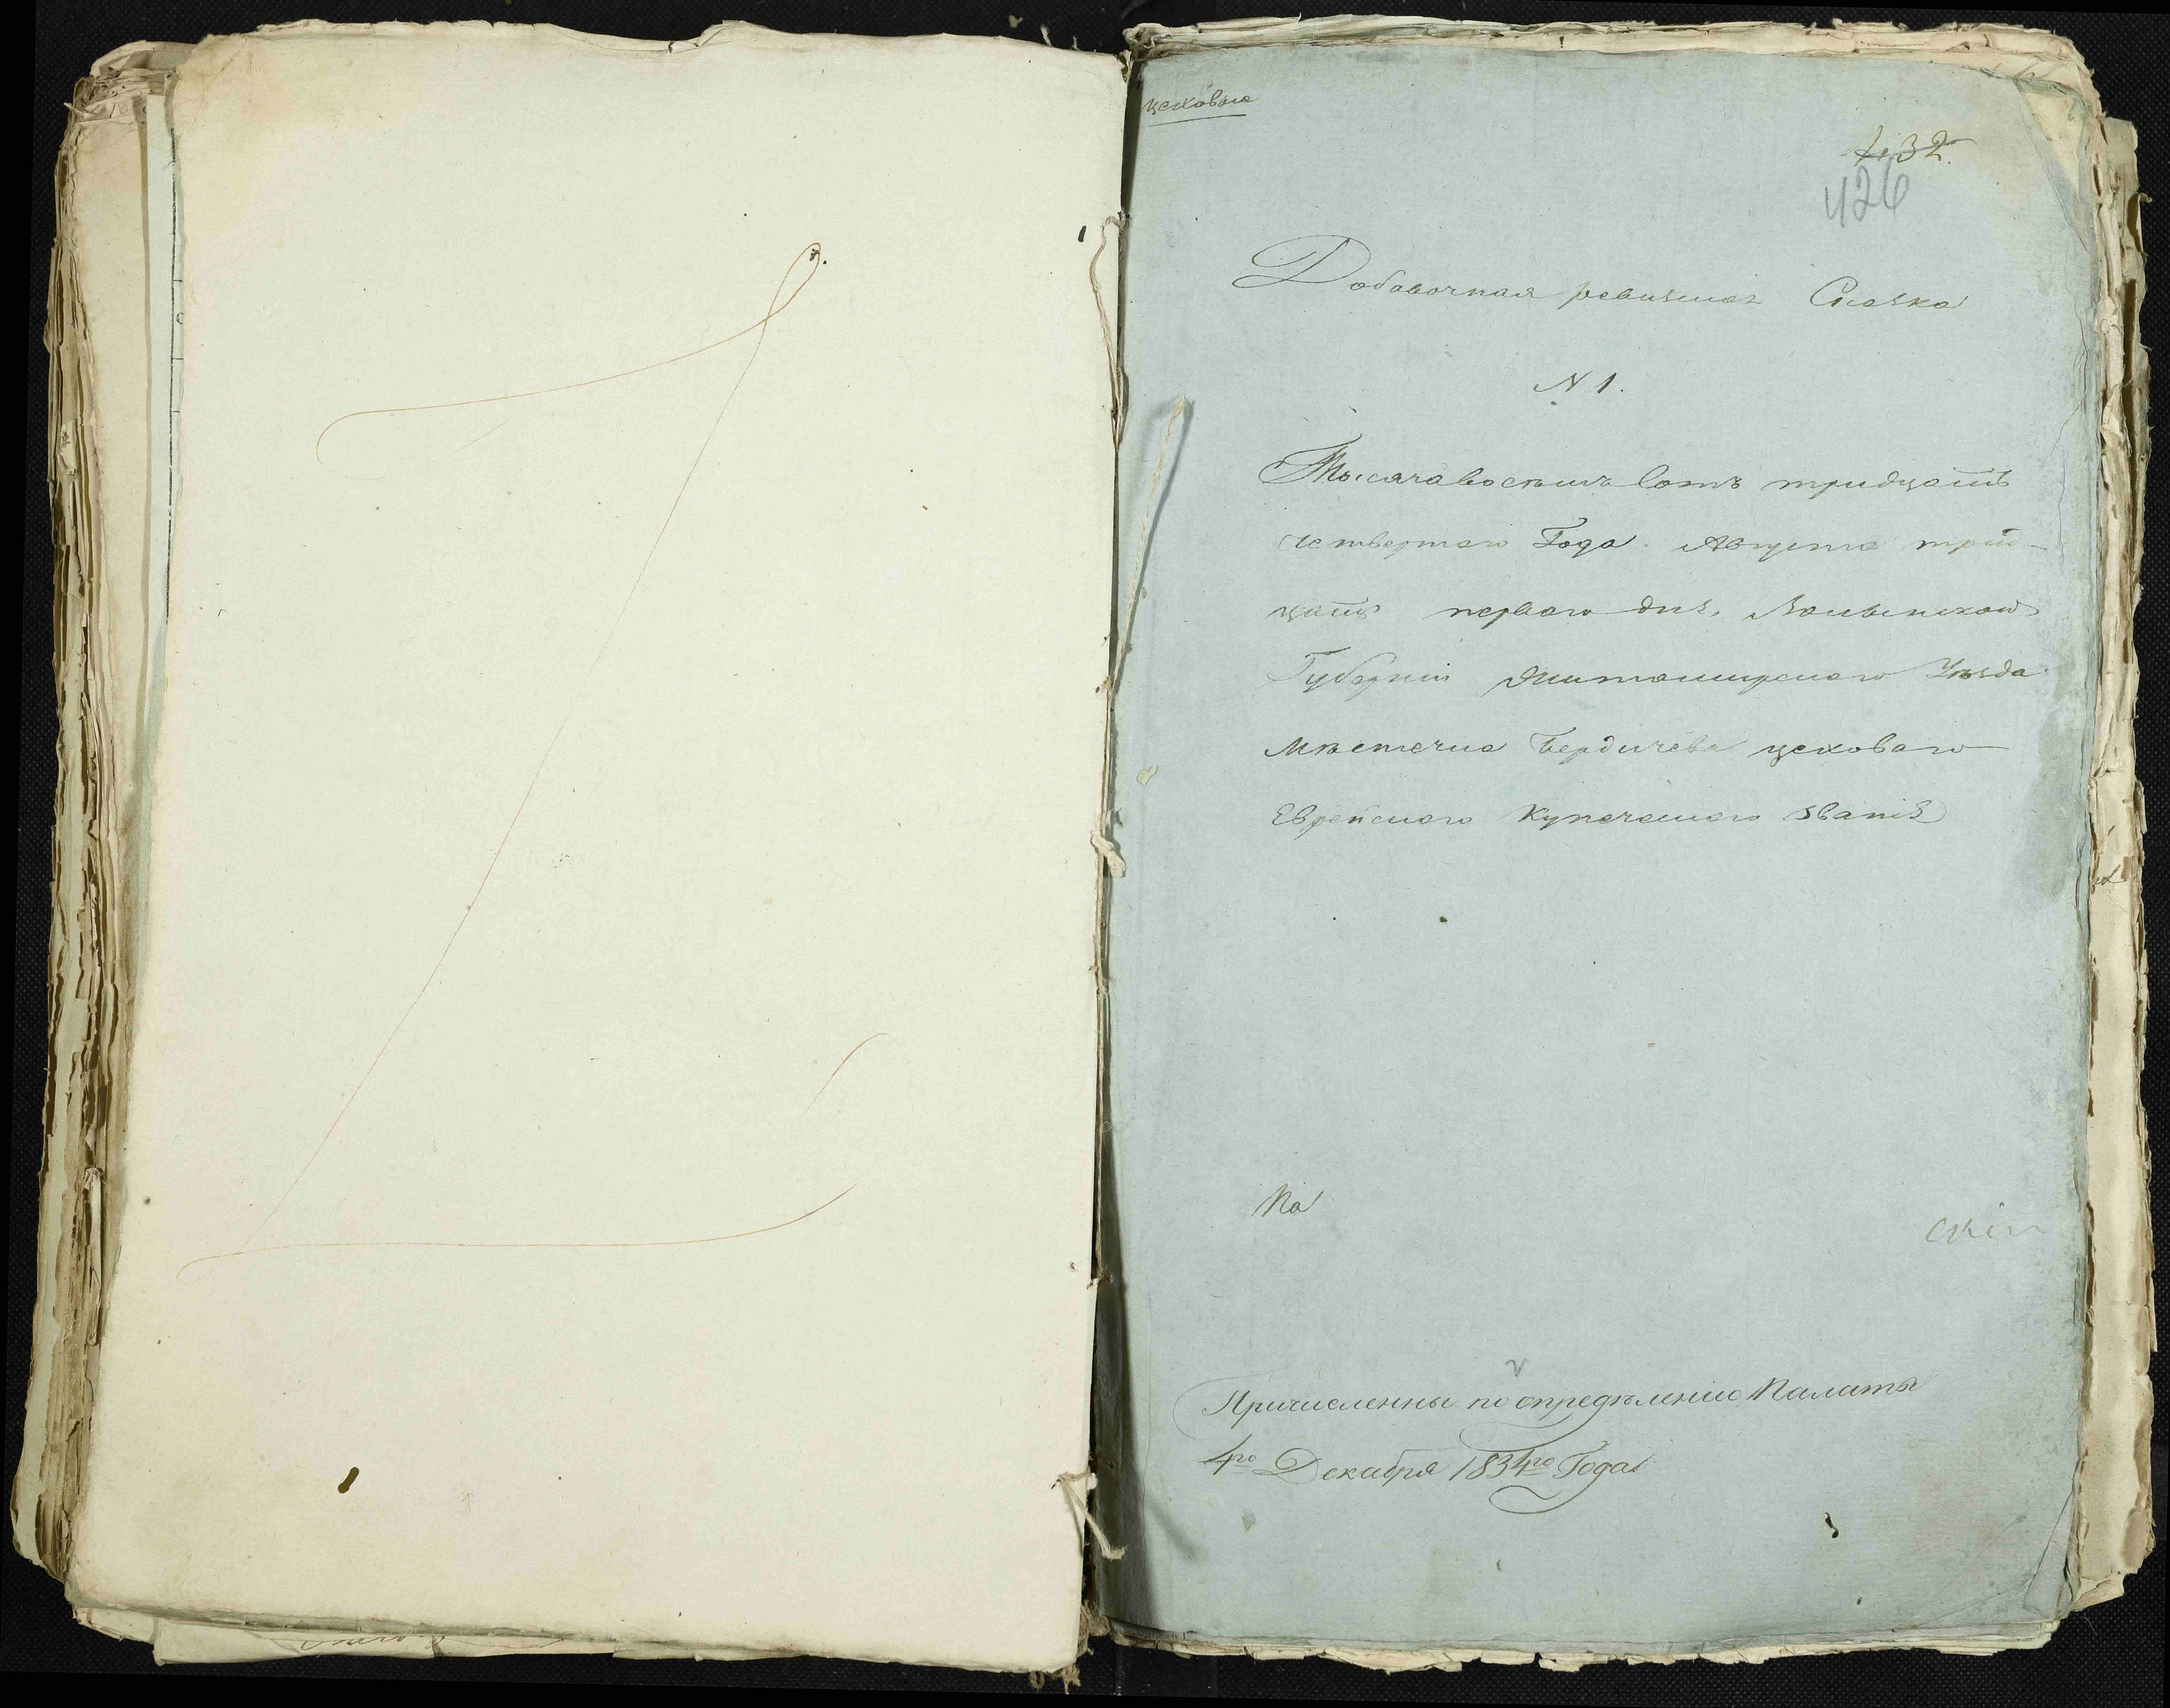 цеховые
432.
426
Добавочная ревизская Сказка
N 1.
Тысяча восемь сотъ тридцать
четвертаго Года Августа трит-
цать перваго дня, Волынской
Губерніи Житомирскаго Уѣзда
мѣстечка Бердичева цеховаго
Еврейскаго Купеческаго званія
На
скій
Причисленны по опредѣленію Палаты
4го Декабря 1834го Года